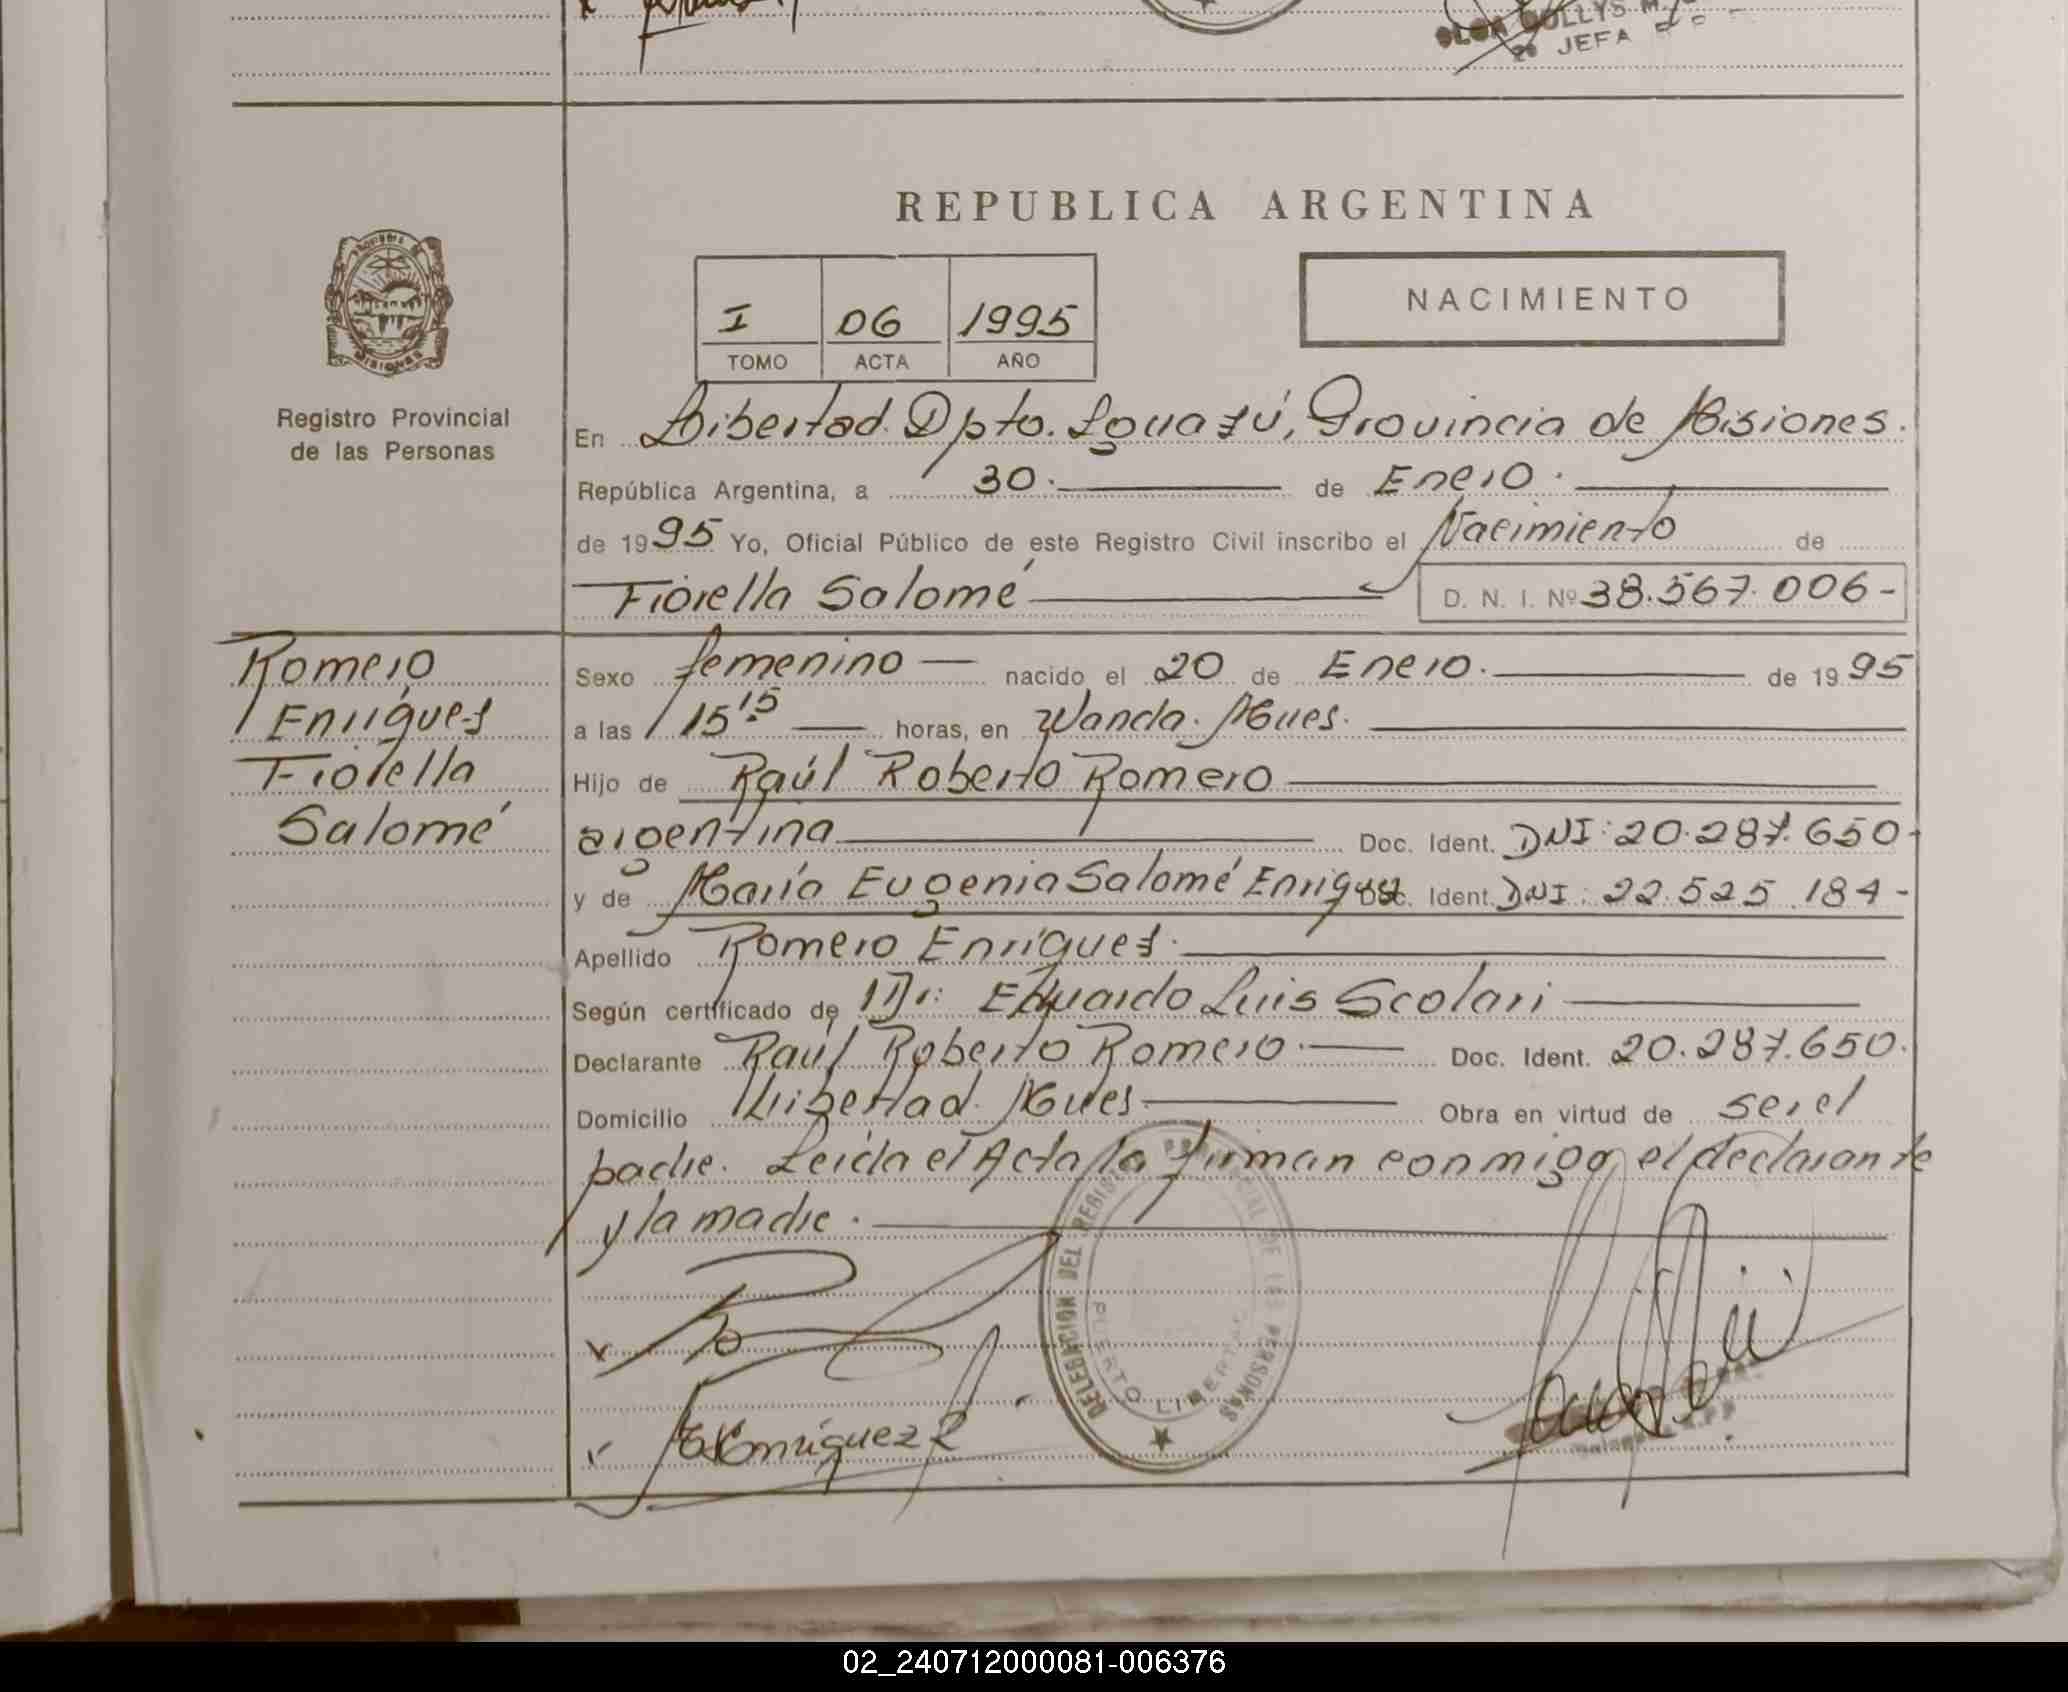 OLGA DOLLYS M.
JEFA
REPUBLICA ARGENTINA
I 06 1995
TOMO ACTA AÑO
NACIMIENTO
Registro Provincial
de las Personas
En Libertad. Dpto. Iguazú, Provincia de Misiones.
República Argentina, a 30. de Enero.
de 1995 Yo, Oficial Público de este Registro Civil inscribo el Nacimiento de
Fiorella Salomé D. N. I. Nº 38.567.006-
Romero
Enriquez
Fiorella
Salomé
Sexo femenino nacido el 20 de Enero. de 1995
a las 15 15 horas, en Wanda. Mnes.
Hijo de Raúl Roberto Romero
argentina Doc. Ident. DNI: 20.287.650-
y de María Eugenia Salomé Enriquez Doc. Ident. DNI: 22.525.184-
Apellido Romero Enriquez.
Según certificado de Dr: Eduardo Luis Scolari
Declarante Raúl Roberto Romero. Doc. Ident. 20.287.650.
Domicilio Libertad. Mnes Obra en virtud de ser el
padre. Leída el Acta la firman conmigo, el declarante
y la madre.
DELEGACION DEL REGISTRO PROVINCIAL DE LAS PERSONAS
PUERTO LIBERTAD
Enriquez
02_240712000081-006376